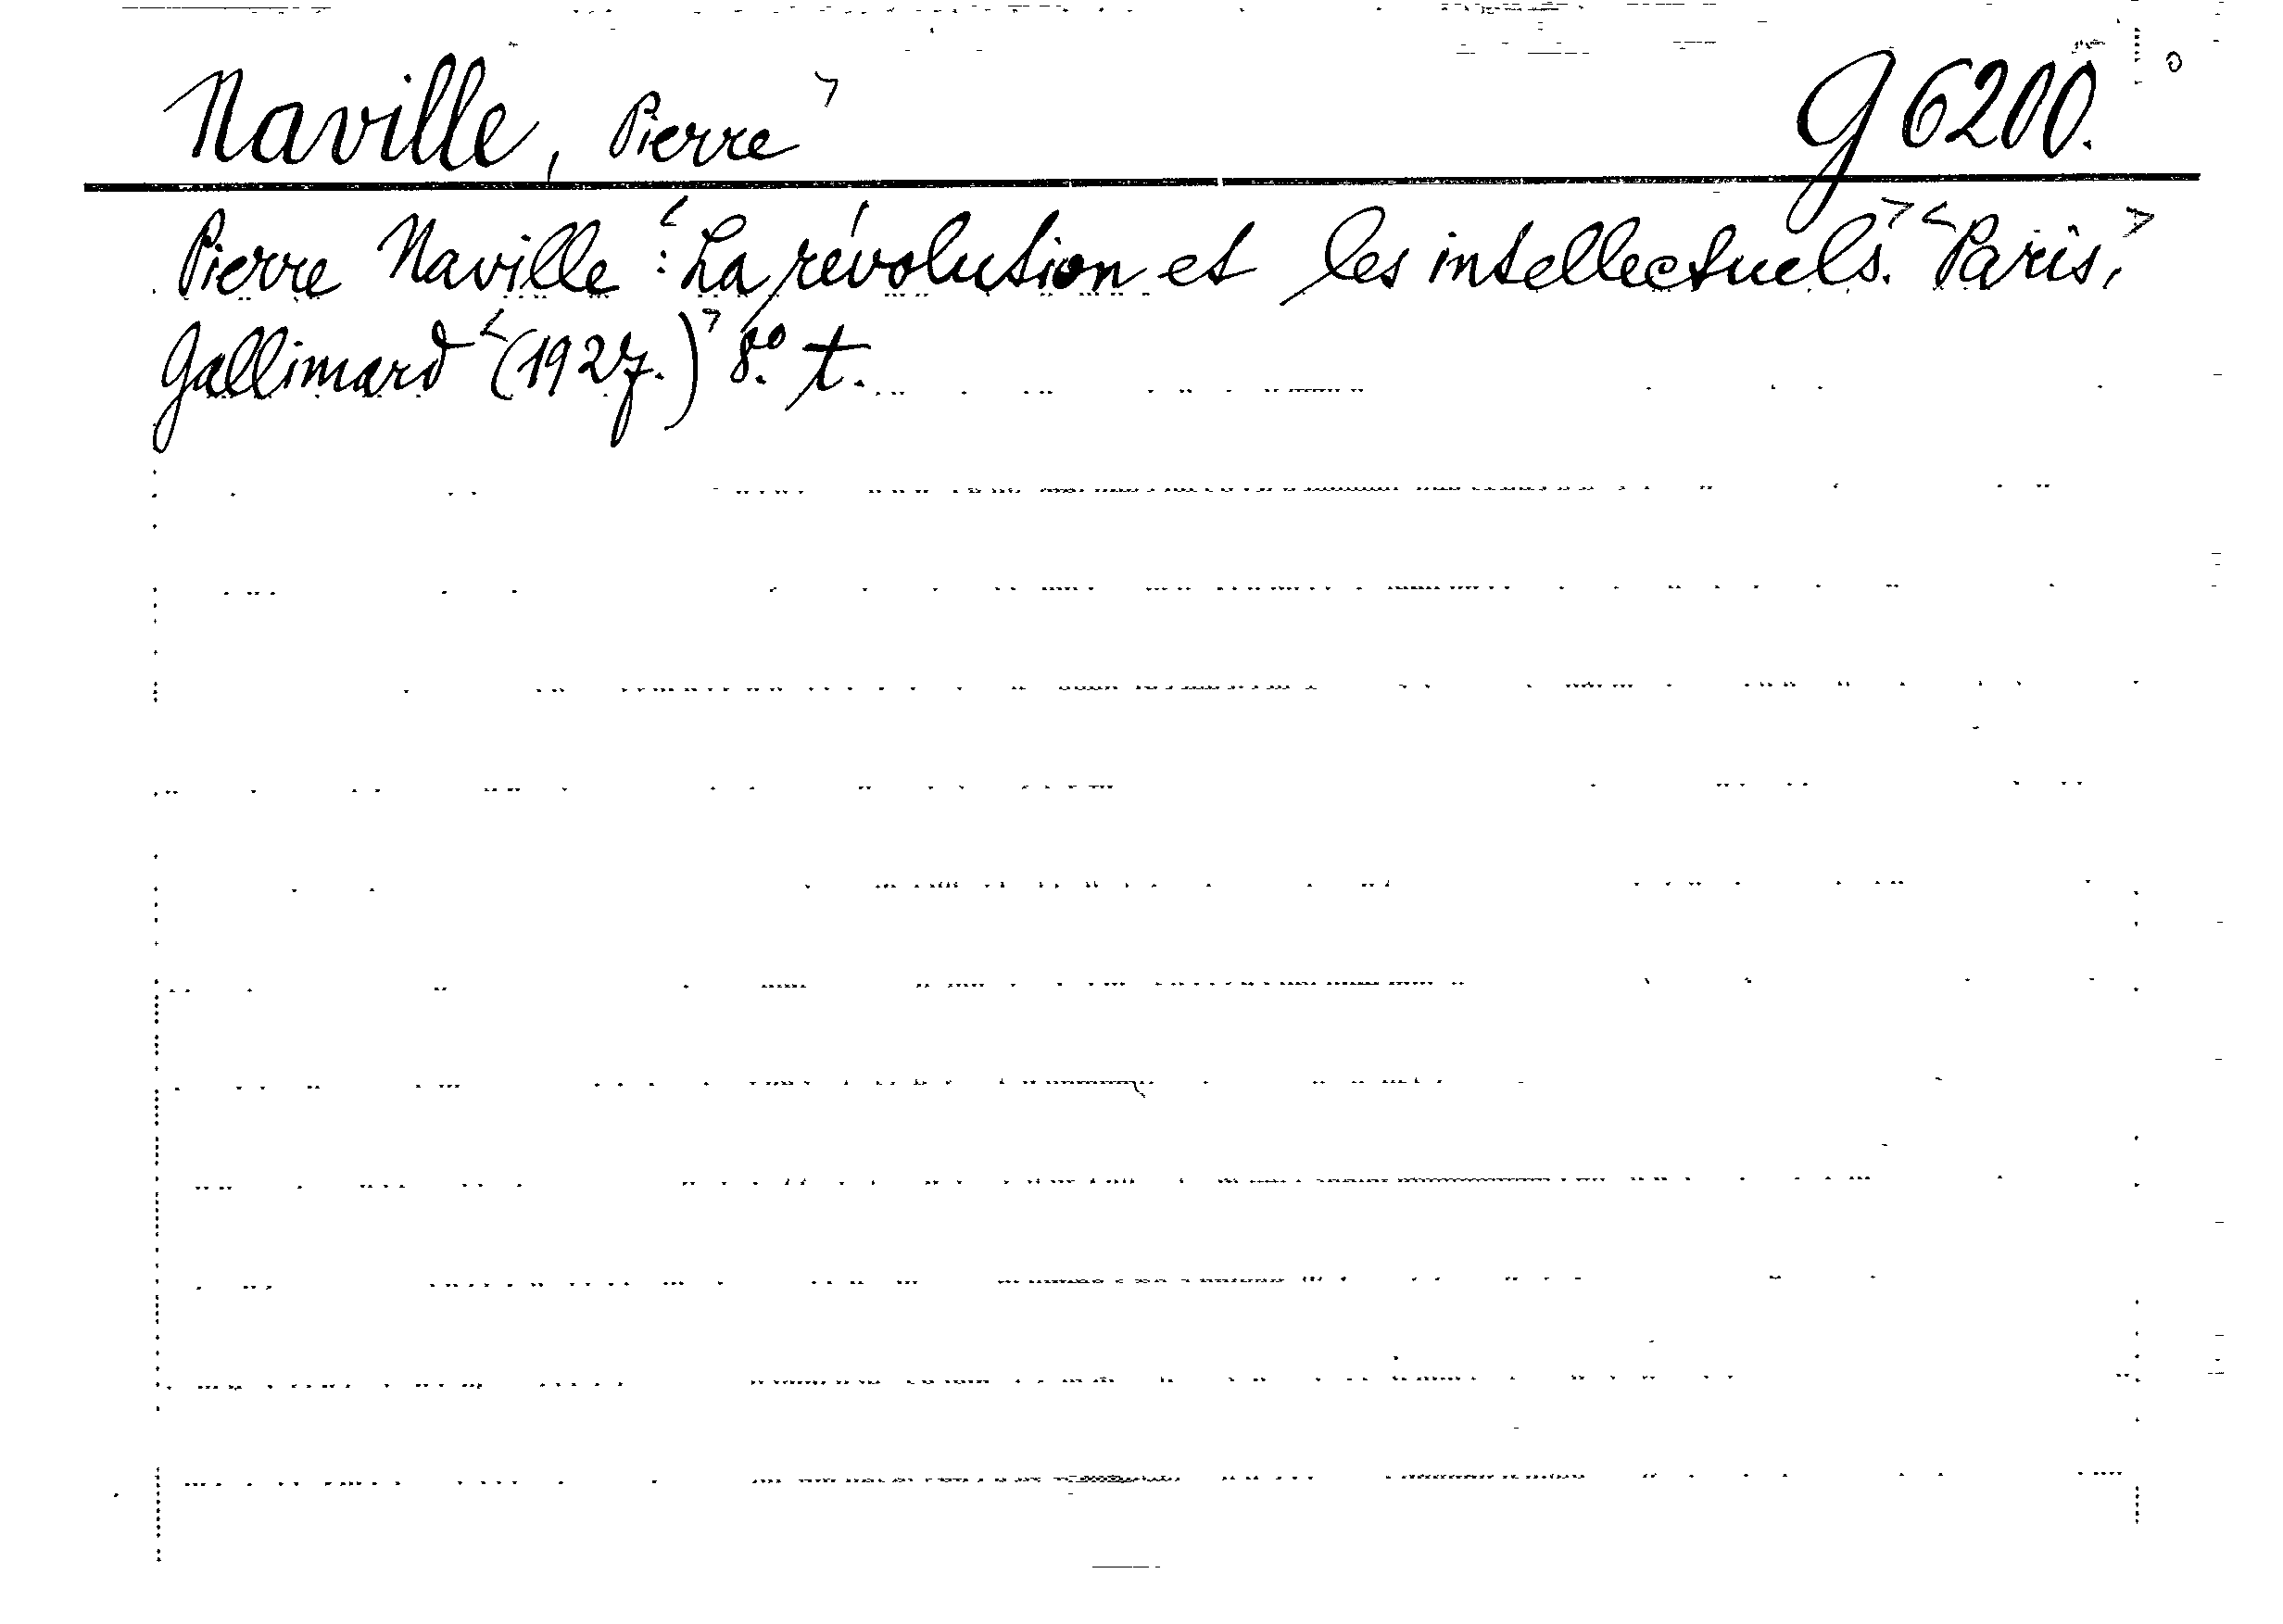 Naville, Pierre> G 6200.
Pierre Naville: <La révolution et les intellectuels.> <Paris,>
Gallimard <(1927.)> 8.° t.